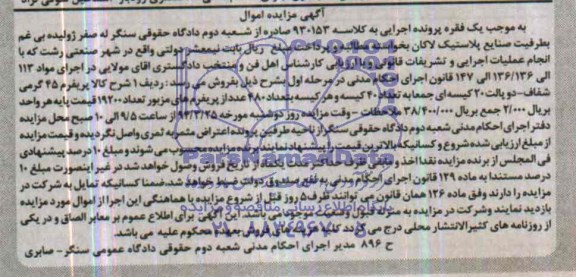 آگهی مزایده اموال
به موجب یک فقره پرونده اجرایی به کلاسه ۹۳۰۱۵۳ صادره از شعبه دوم دادگاه حقوقی سنگر له صفر ژولیده بی غم
بطرفیت صنایع پلاستیک لاکان بخواسته مطالبه و پرداخت مبلغ ریال بابت نیمعشر دولتی واقع در شهر صنعتی رشت که با
انجام عملیات اجرایی و تشریفات قانونی و با ارزیابی کارشناس اهل فن و منتخب دادگستری اقای مولایی در اجرای مواد ۱۱۳
الی ۱۳۶/۱۳۶ الی ۱۴۷ قانون اجرای احکام مدنی در مرحله اول بشرح ذیل بفروش می رسد: ردیف ۱ شرح کالا پریفرم ۴۵ گرمی
شفاف-دو پالت ۲۰ کیسه ای جمعا به تعداد ۴۰ کیسه و هر کیسه تعداد ۴۸۰ عدد از پریفرم های مزبور تعداد ۱۹۲۰۰ قیمت پایه هر واحد
بریال ۲/۰۰۰ جمع بریال ۳۸/۴۰۰/۰۰۰ ملاحظات - وقت مزایده روز دوشنبه مورخه ۹۴/۳/۲۵ از ساعت ۹/۵ الی ۱۰ صبح محل مزایده
دفتر اجرای احکام مدنی شعبه دوم دادگاه حقوقی سنگر از ناحیه طرفین پرونده اعتراض مثمر به ثمری واصل نگردیده و قیمت مزایده
از مبلغ ارزیابی شده شروع و کسانیکه بالاترین قیمت را پیشنهاد نمایند برنده مزایده محسوب می شوند و مبلغ ۱۰ درصد پیشنهادی
فی المجلس از برنده مزایده نقدا اخذ و از تاریخ فروش وصول خواهد شد در غیر اینصورت مبلغ ۱۰
درصد مستندا به ماده ۱۲۹ قانون اجرای احکام مدنی به نفع صندوق دولت ضبط خواهد شد، ضمنا کسانیکه تمایل به شرکت در
مزایده را دارند وفق ماده ۱۲۶ همان قانون می توانند ظرف ۵ روز قبل از شروع مزایده با هماهنگی این اجرا از اموال مورد مزایده
بازدید نمایند وشرکت در مزایده به منزله قبول وضعیت موجود می باشد. این آگهی برای اطلاع عموم بر معابر الصاق و در یکی
از روزنامه های کثیرالانتشار محلی درج می گردد کلیه هزینه های فروش بعهده محکوم علیه می باشد.
ح ۸۹۶ مدیر اجرای احکام مدنی شعبه دوم حقوقی دادگاه عمومی سنگر- صابری
ParsNamadData